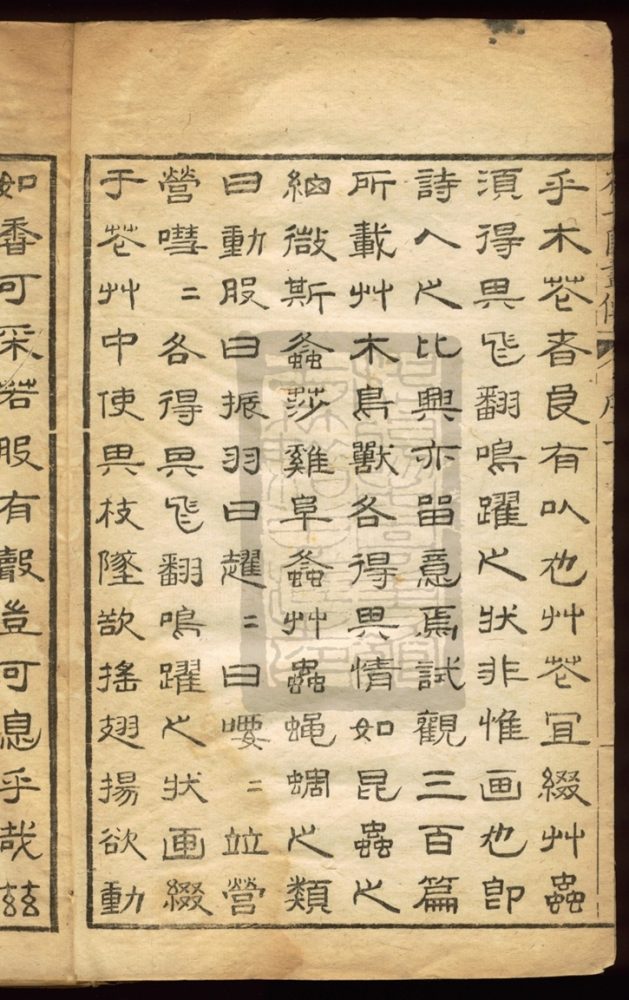 乎木花者良有㠯也艸花宜綴艸蟲
須得其飛翻鳴躍之狀非惟画也即
詩人之比興亦留意焉試觀三百篇
所載艸木鳥獸各得其情如昆蟲之
細微斯螽莎雞阜螽艸蟲蝿蜩之類
曰動股曰振羽曰趯〻曰喓〻竝營
營嘒〻各得其飛翻鳴躍之狀画綴
于花艸中使其枝墜欲搖翅揚欲動
如香可采若股有聲豈可忽乎哉茲